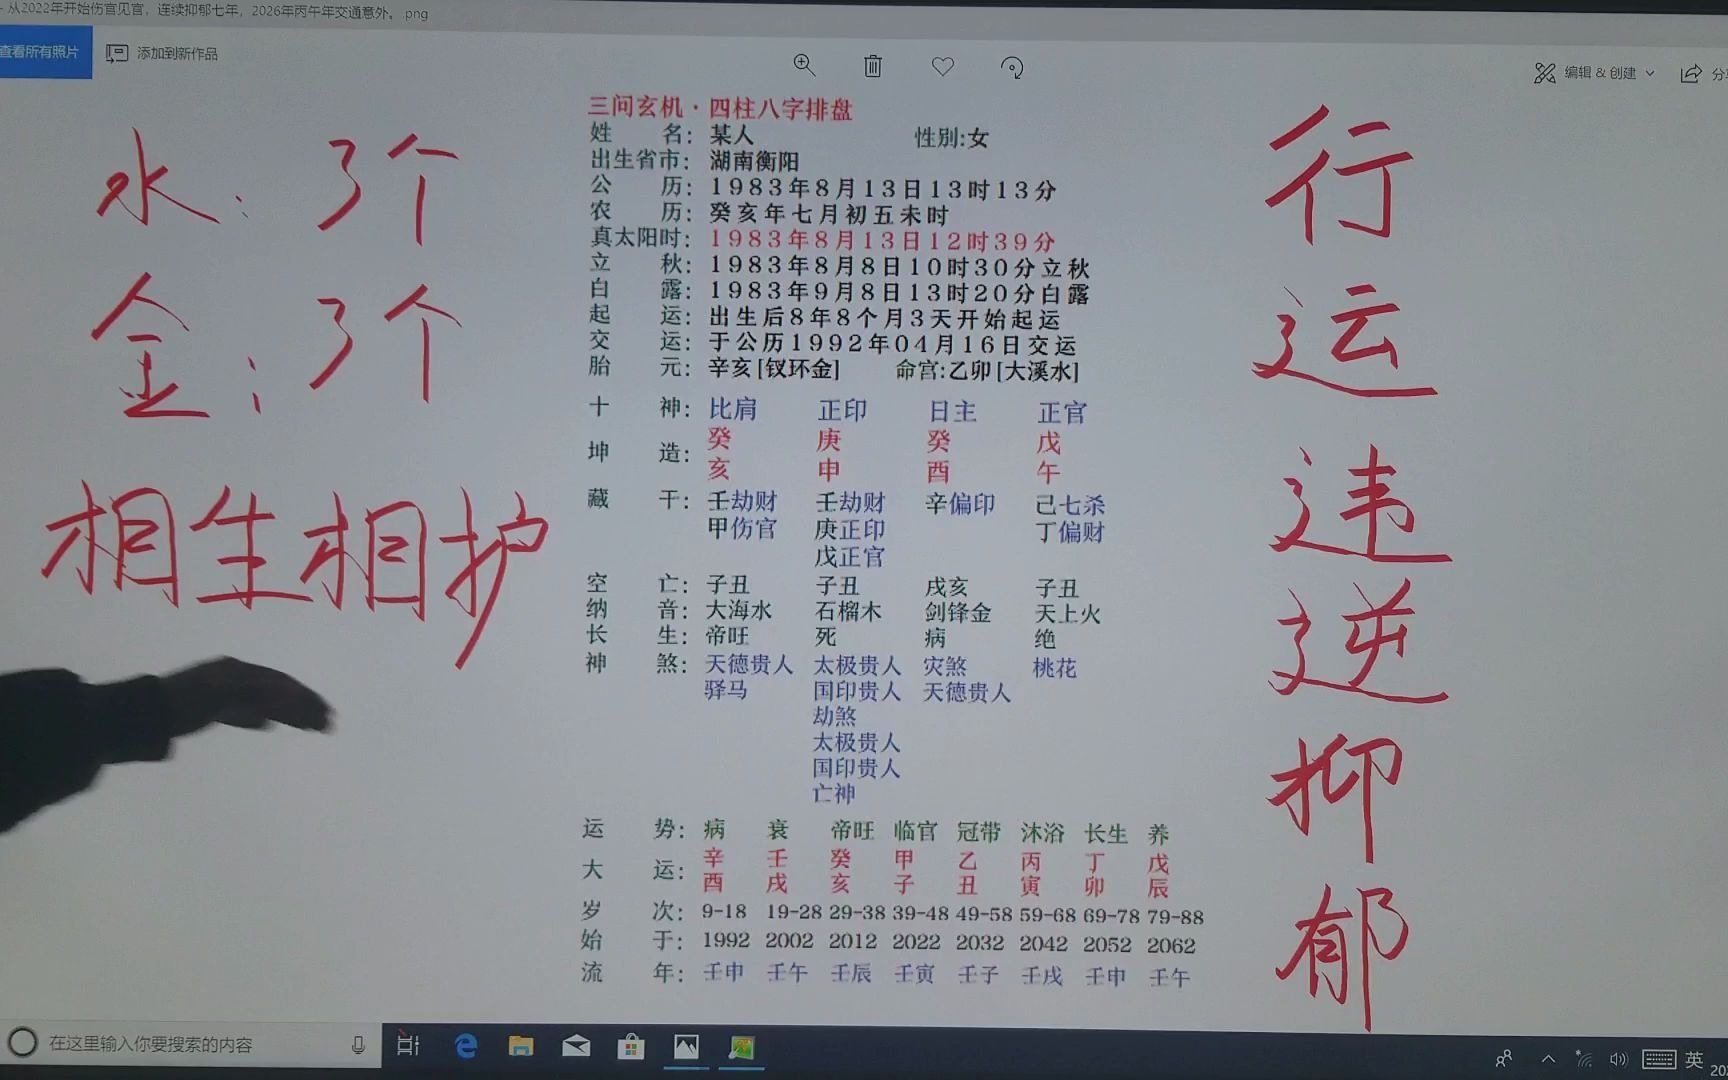 从2022年开始伤官见官，连续抑郁七年，2026年丙午年交通意外。.png
查看所有照片 添加到新作品 编辑 & 创建
三问玄机·四柱八字排盘
姓 名： 某人 性别:女
出生省市： 湖南衡阳
公 历： 1983年8月13日13时13分
农 历： 癸亥年七月初五未时
真太阳时： 1983年8月13日12时39分
立 秋： 1983年8月8日10时30分立秋
白 露： 1983年9月8日13时20分白露
起 运： 出生后8年8个月3天开始起运
交 运： 于公历1992年04月16日交运
胎 元： 辛亥[钗环金] 命宫:乙卯[大溪水]
十 神： 比肩 正印 日主 正官
坤 造： 癸 庚 癸 戊
亥 申 酉 午
藏 干： 壬劫财 壬劫财 辛偏印 己七杀
甲伤官 庚正印 丁偏财
戊正官
空 亡： 子丑 子丑 戌亥 子丑
纳 音： 大海水 石榴木 剑锋金 天上火
长 生： 帝旺 死 病 绝
神 煞： 天德贵人 太极贵人 灾煞 桃花
驿马 国印贵人 天德贵人
劫煞
太极贵人
国印贵人
亡神
运 势： 病 衰 帝旺 临官 冠带 沐浴 长生 养
大 运： 辛 壬 癸 甲 乙 丙 丁 戊
酉 戌 亥 子 丑 寅 卯 辰
岁 次： 9-18 19-28 29-38 39-48 49-58 59-68 69-78 79-88
始 于： 1992 2002 2012 2022 2032 2042 2052 2062
流 年： 壬申 壬午 壬辰 壬寅 壬子 壬戌 壬申 壬午
水：3个
金：3个
相生相护
行运违逆抑郁
在这里输入你要搜索的内容
英